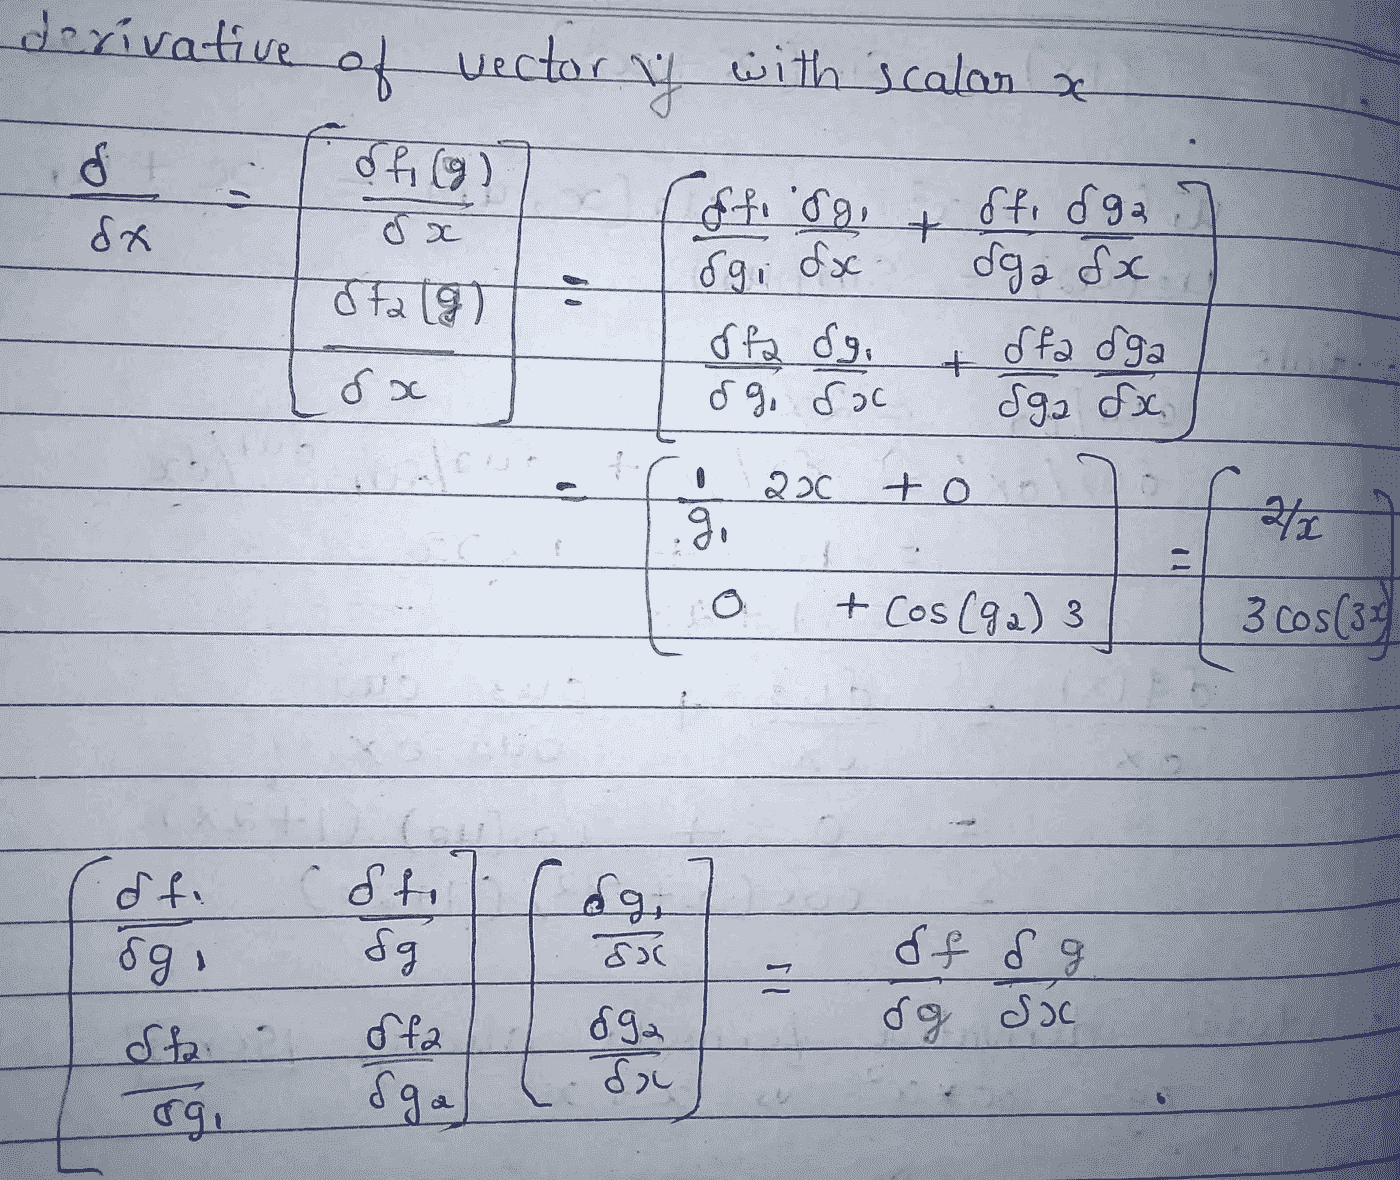 derivative of vector y with scalar x
δ/δx = [δf₁(g)/δx ; δf₂(g)/δx] = [δf₁/δg₁ δg₁/δx + δf₁/δg₂ δg₂/δx ; δf₂/δg₁ δg₁/δx + δf₂/δg₂ δg₂/δx]
= [1/g₁ 2x + 0 ; 0 + cos(g₂) 3] = [2/x ; 3 cos(3x)]
[δf₁/δg₁ δf₁/δg ; δf₂/δg₁ δf₂/δg₂] [δg₁/δx ; δg₂/δx] = δf/δg δg/δx